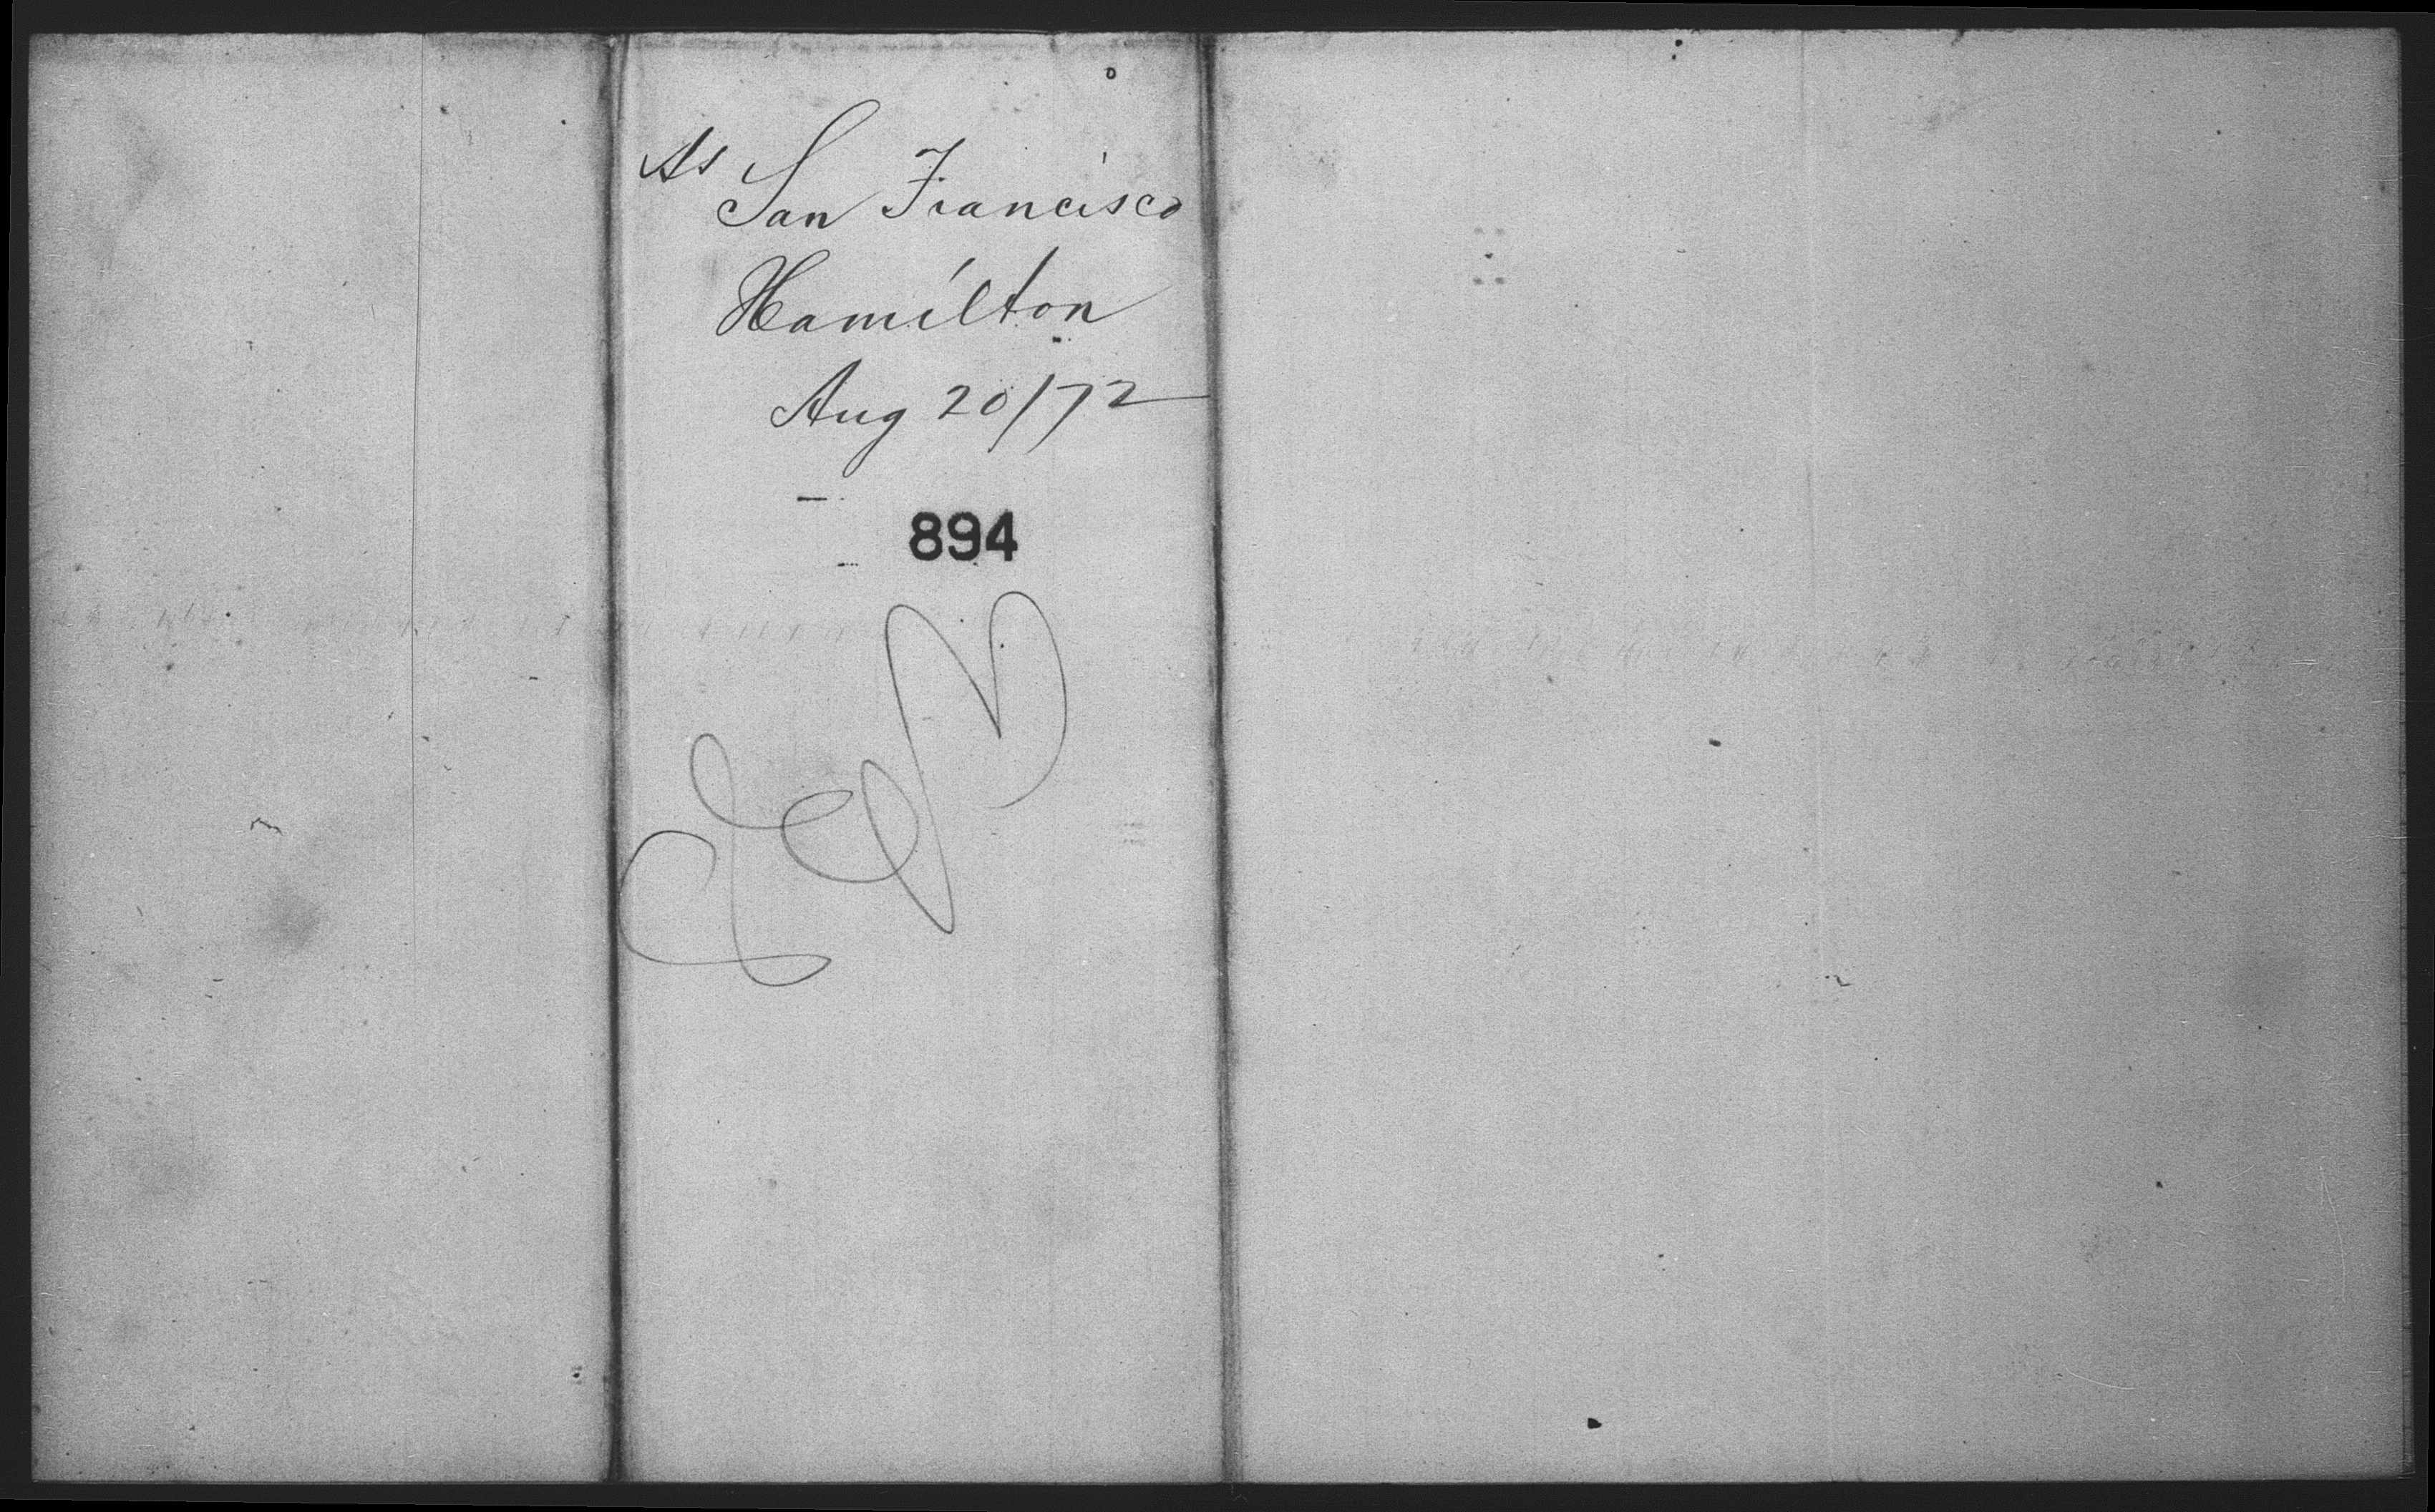 As
San Francisco
Hamilton
Aug 20/72
894